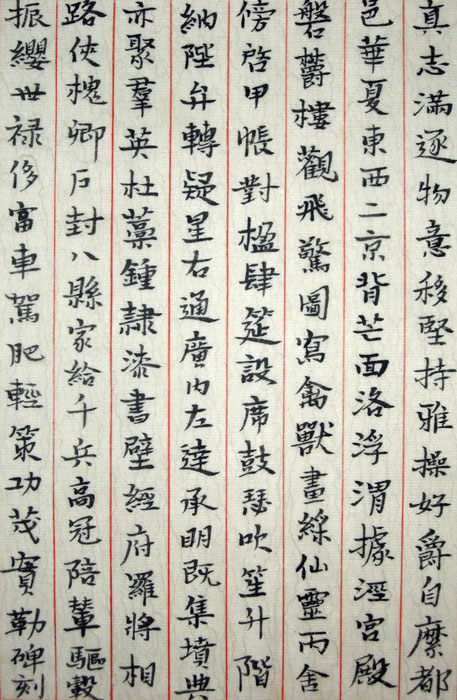 真志滿逐物意移堅持雅操好爵自縻都
邑華夏東西二京背芒面洛浮渭據涇宮殿
磐欝樓觀飛驚圖寫禽獸畫綵仙靈丙舍
傍啓甲帳對楹肆筵設席鼓瑟吹笙升階
納陛弁轉疑星右通廣内左達承明既集墳典
亦聚羣英杜藁鍾隸漆書壁經府羅將相
路俠槐卿戶封八縣家給千兵高冠陪輦驅轂
振纓世禄侈富車駕肥輕策功茂實勒碑刻